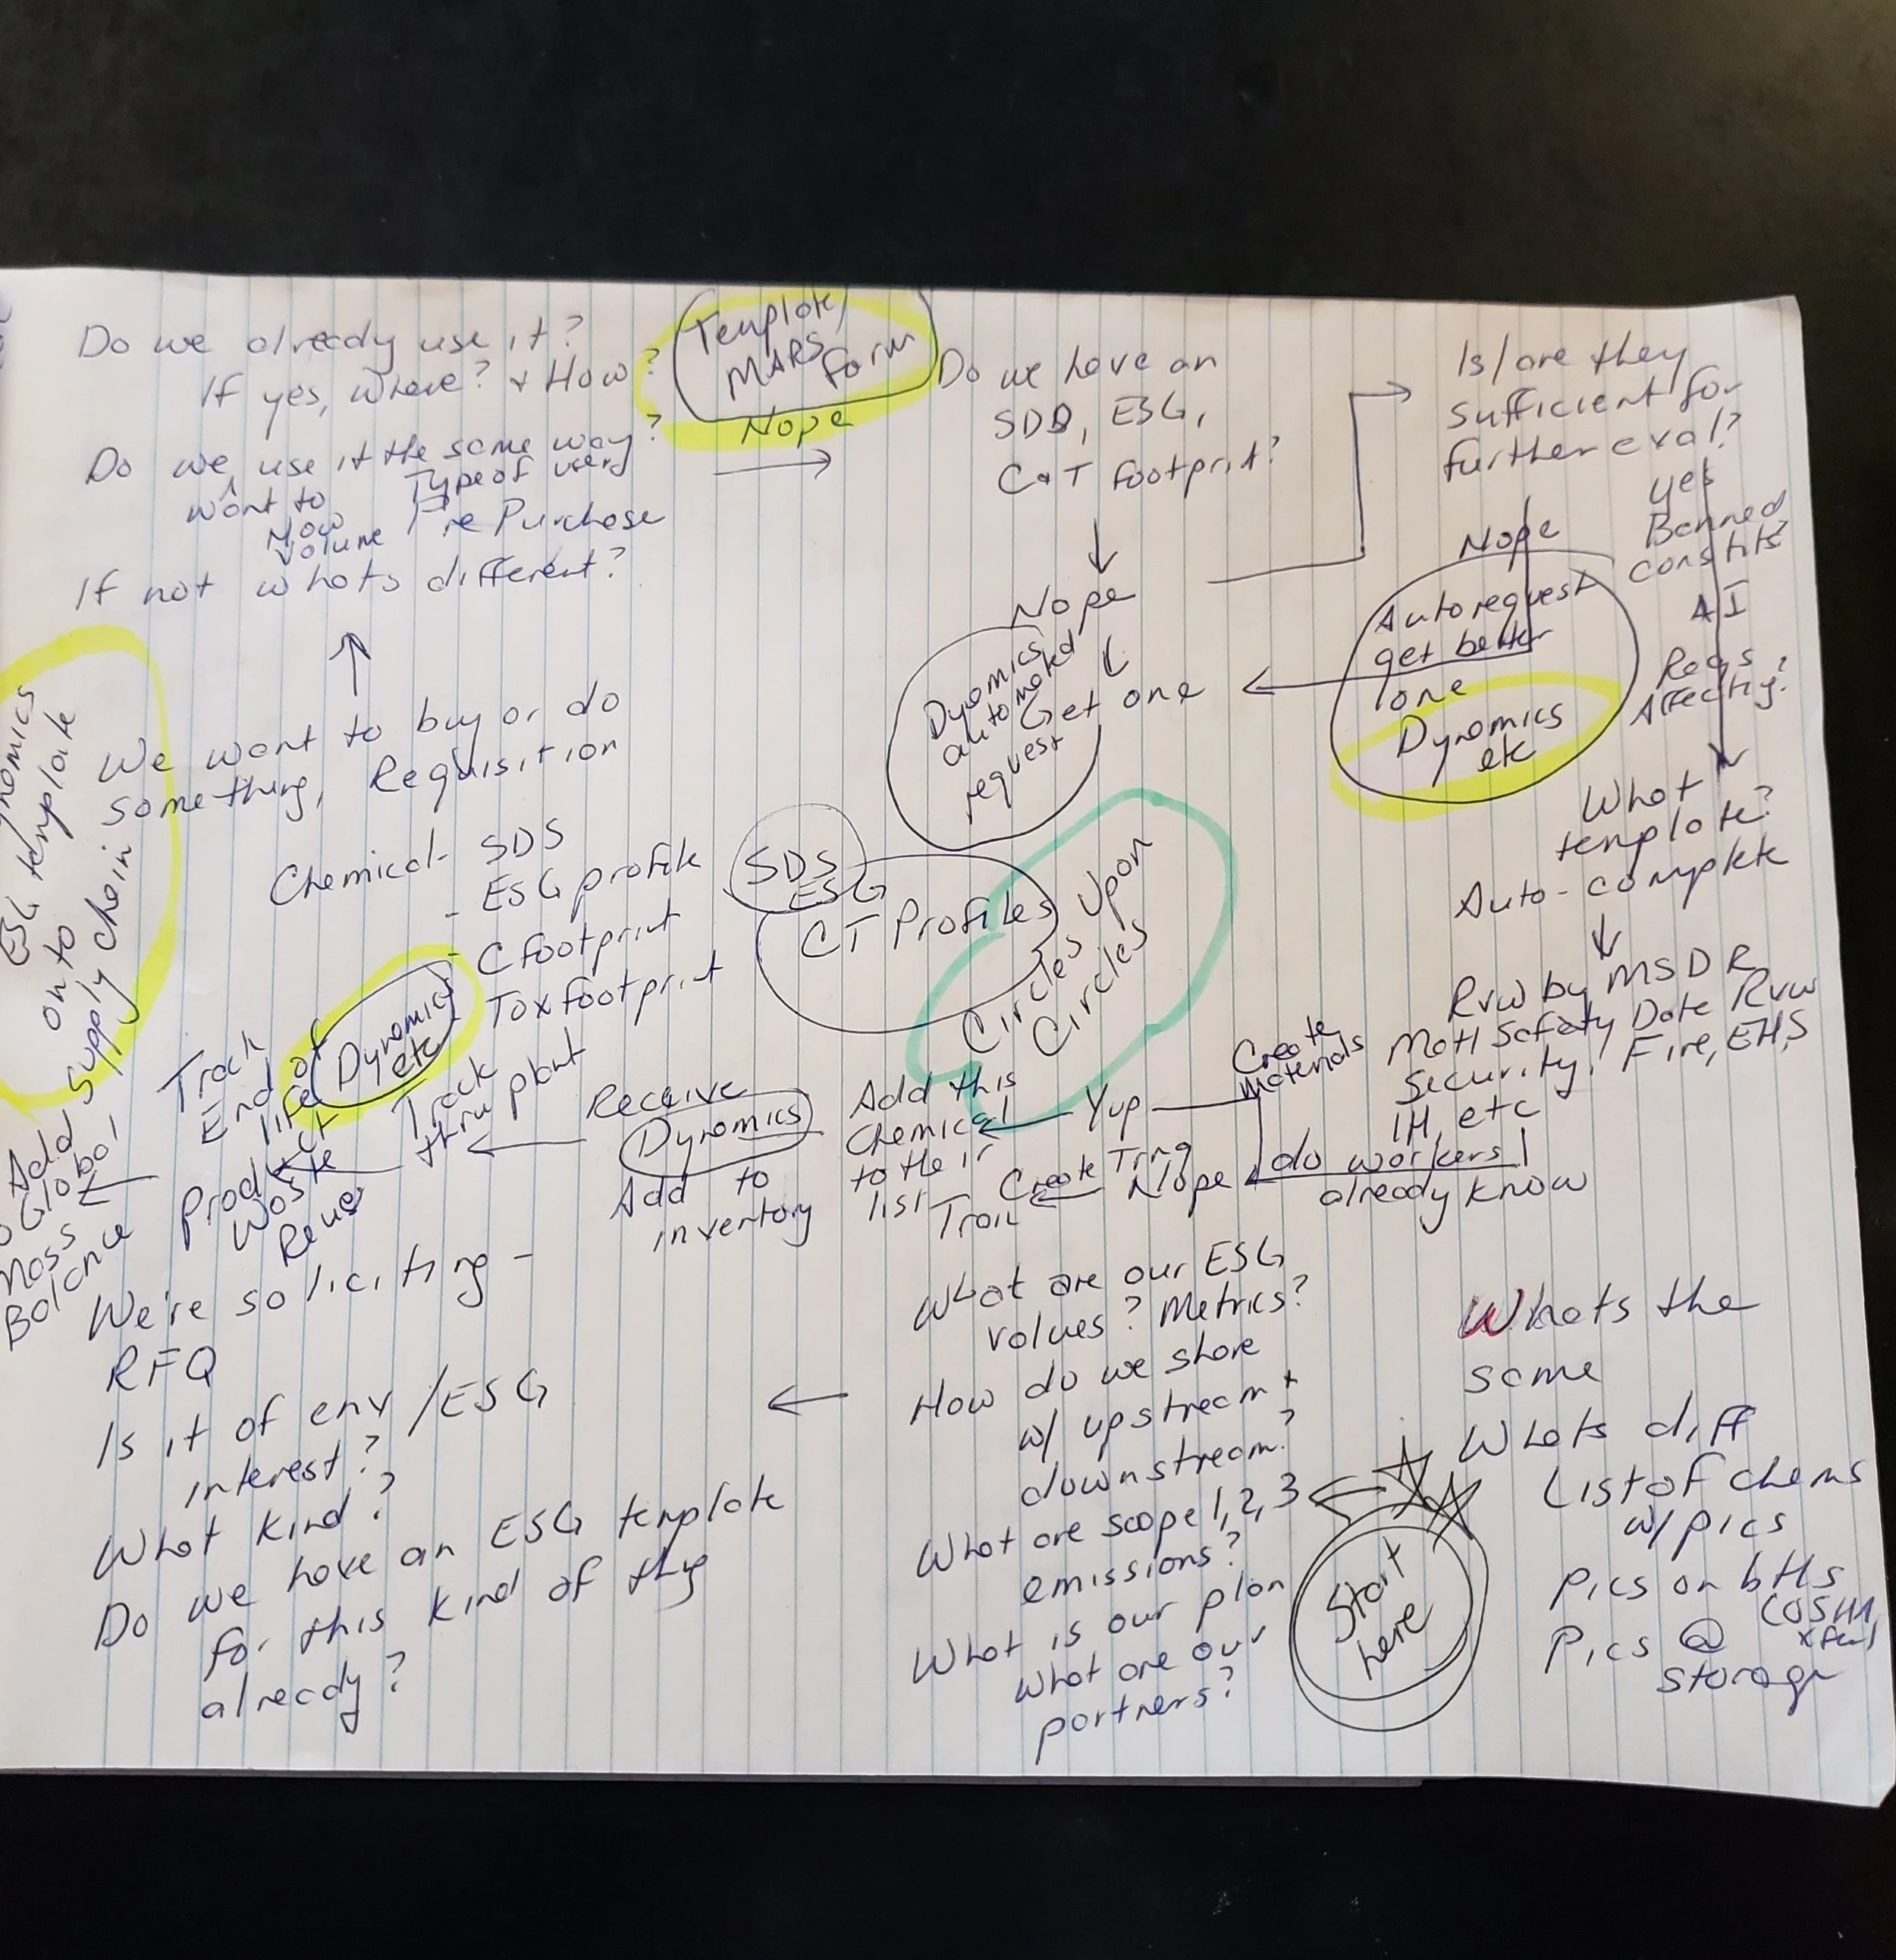 Do we already use it?
If yes, where? + How?
Do we use it the same way?
want to
Type of user
Now
Volume
Pre Purchase
If not whats different?
Template/
MARS
Form
Nope
Do we have an
SDS, ESG,
C+T footprint?
Nope
Get one
Dynamics
automated
request
Is/are they
sufficient for
further eval?
Nope
yes
Banned
constits?
AI
Regs
Affecting?
Autorequest
get better
one
Dynamics
etc
What
template?
Auto-complete
Rvw by MSDR
Matl Safety Data Rvw
Security, Fire, EHS
IH, etc
do workers
already know
Yup
Create
Materials
Nope
Create Trng
Train
Add this
Chemical
to their
list
Receive
Dynamics
Add to
inventory
Track
thru plant
Dynamics
etc
Track
End of
life
Product
Waste
Reuse
Add
Global
Mass
Balance
ESG template
on to
supply chain
We want to buy or do
something, Requisition
Chemical- SDS
- ESG profile
- C footprint
Tox footprint
SDS
ESG
CT Profiles
Circles Upon
Circles
We're soliciting -
RFQ
Is it of env/ESG
interest?
What kind?
Do we have an ESG template
for this kind of thg
already?
What are our ESG
values? Metrics?
How do we share
w/ upstream +
downstream?
What are scope 1,2,3
emissions?
What is our plan
what are our
partners?
Start
here
Whats the
same
Whats diff
List of chems
w/pics
Pics on bttls
Pics @
storage